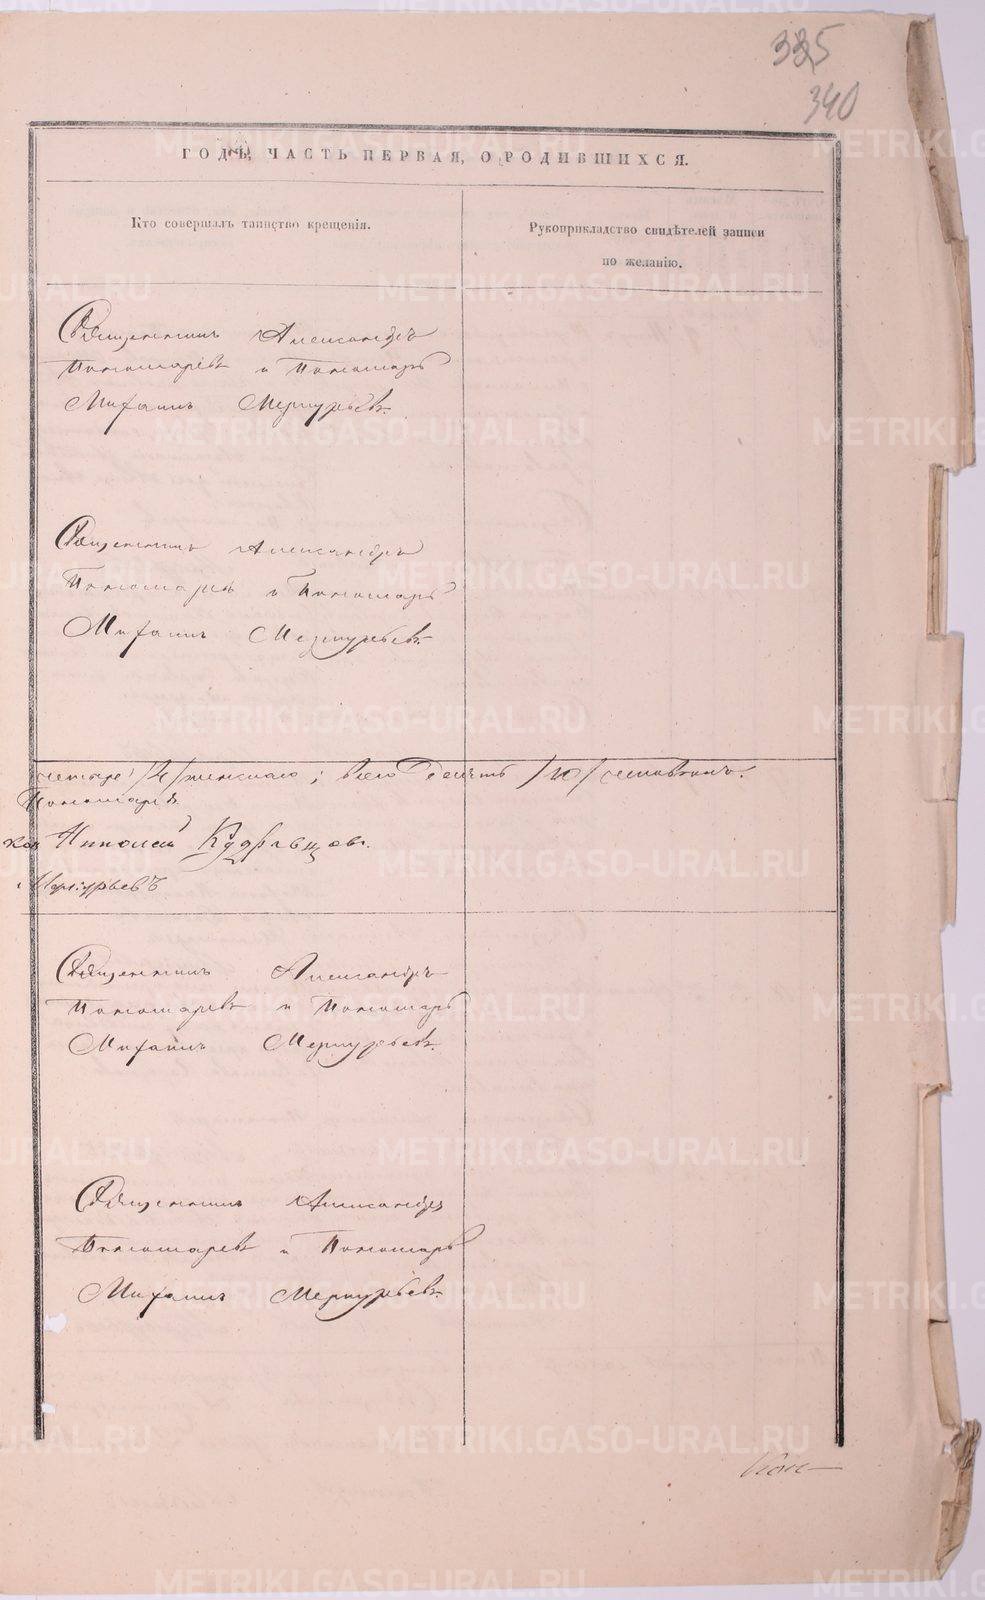 335
340
ГОДЪ, ЧАСТЬ ПЕРВАЯ, О РОДИВШИХСЯ.
Кто совершалъ таинство крещенія.
Рукоприкладство свидѣтелей записи
по желанію.
Священникъ Александръ
Пономаревъ и Пономарь
Михаилъ Меркурьевъ.
Священникъ Александръ
Пономаревъ и Пономарь
Михаилъ Меркурьевъ.
четыре /4/ женскаго; всего десять /10/ человѣкъ.
Пономаревъ
Николай Кудрявцовъ.
Меркурьевъ
Священникъ Александръ
Пономаревъ и Пономарь
Михаилъ Меркурьевъ.
Священникъ Александръ
Пономаревъ и Пономарь
Михаилъ Меркурьевъ.
METRIKI.GASO-URAL.RU